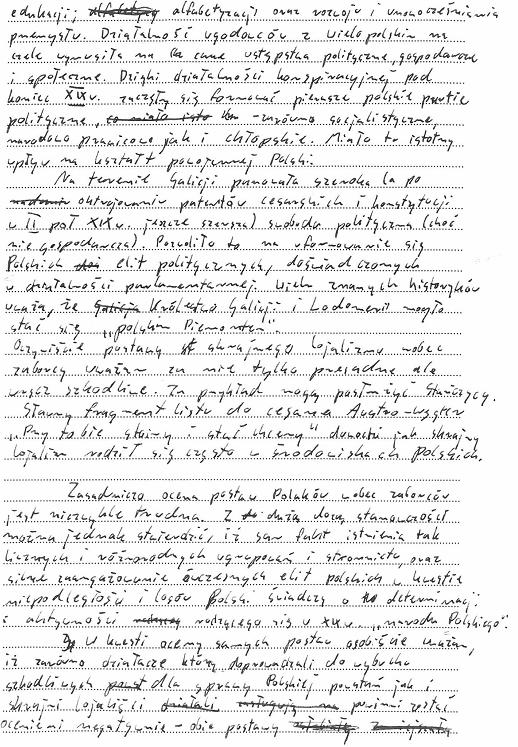 edukacji; alfabetyzacji oraz rozwoju i unowocześniania
przemysłu. Działalność ugodowców z wielopolskim na
czele wymogła na carze ustępstwa polityczne, gospodarcze
i społeczne. Dzięki działalności konspiracyjnej pod
koniec XIX w. zaczęły się formować pierwsze polskie partie
polityczne, - zarówno socjalistyczne,
narodowo prawicowe jak i chłopskie. Miało to istotny
wpływ na kształt powojennej Polski.
Na terenie Galicji panowała szeroka (a po
oktrojowaniu patentów cesarskich i konstytucji
w II poł XIX w. jeszcze szersza) swoboda polityczna (choć
nie gospodarcza). Pozwoliło to na uformowanie się
Polskich elit politycznych, doświadczonych
w działalności parlamentarnej. Wielu znanych historyków
uważa, że Królestwo Galicji i Lodomerii mogło
stać się „polskim Piemontem".
Oczywiście postawy skrajnego lojalizmu wobec
zaborcy uważam za nie tylko przesadne ale
wręcz szkodliwe. Za przykład mogą posłużyć Stańczycy.
Sławny fragment listu do cesarza Austro-Węgier
„Przy tobie stoimy i stać chcemy" dowodzi jak skrajny
lojalizm rodził się często w środowiskach Polskich.
Zasadnicza ocena postaw Polaków wobec zaborców
jest niezwykle trudna. Z dużą dozą stanowczości
można jednak stwierdzić, iż sam fakt istnienia tak
licznych i różnorodnych ugrupowań i stronnictw, oraz
silne zaangażowanie ówczesnych elit polskich w kwestie
niepodległości i losów Polski świadczy o determinacji
i aktywności rodzącego się w XIX w. „narodu Polskiego".
W kwestii oceny samych postaw osobiście uważam,
iż zarówno działacze którzy doprowadzali do wybuchu
szkodliwych dla sprawy Polskiej powstań jak i
skrajni lojaliści powinni zostać
ocenieni negatywnie - obie postawy